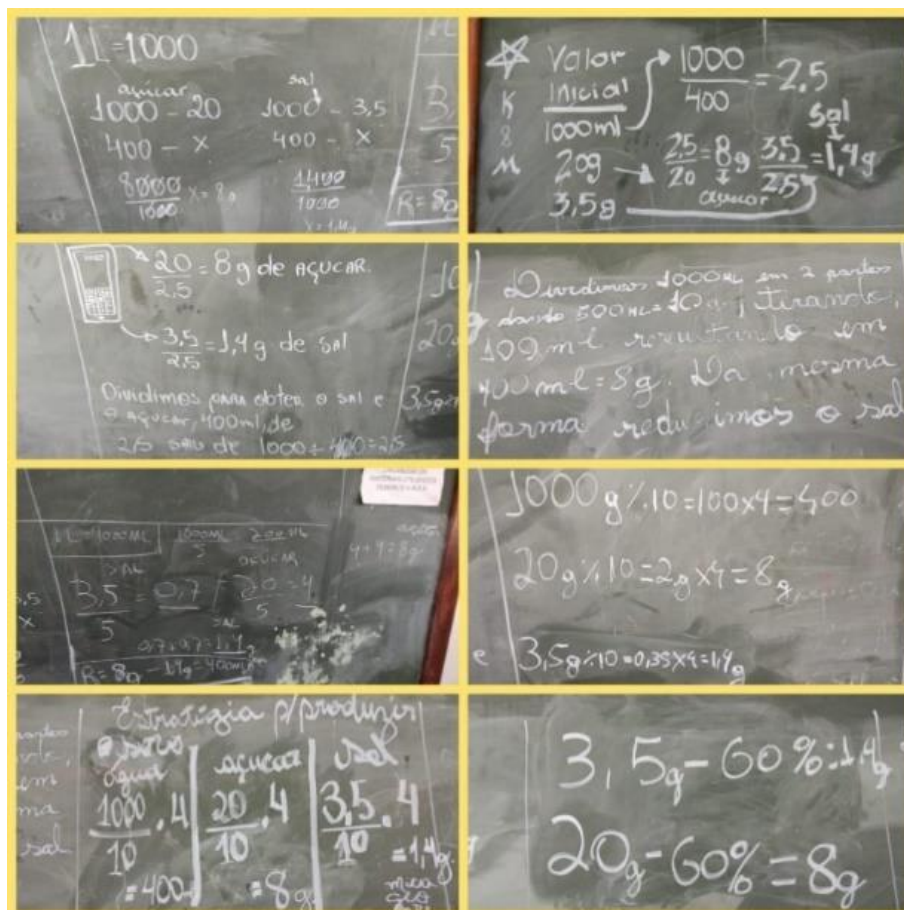 1L=1000
açúcar
sal
1000 - 20
1000 - 3,5
400 - X
400 - X
8000
1000
X=8g
1400
1000
X=1,4g
3,
5
R=8g
K
8
M
Valor
Inicial
1000ml
20g
3,5g
1000
400
= 2,5
sal
2,5
20
= 8g
açucar
3,5
2,5
= 1,4g
20
2,5
= 8 g de AÇUCAR.
3,5
2,5
= 1,4 g de sal
Dividimos para obter o sal e
o açucar, 400ml, de
2,5 de 1000 ÷ 400 = 2,5
20,
3,5g
Dividimos 1000ML em 2 partes
dando 500ML = 10g, tirando,
100 ml resultando em
400 ml = 8g. Da mesma
forma reduzimos o sal
1L=1000ML
1000ML
5
= 200ML
SAL
AÇUCAR
3,5
5
= 0,7
20
5
= 4
4+4=8g
SAL
0,7+0,7=1,4g
R=8g - 1,4g = 400ml
1000g%10=100x4=400
20g%10=2gx4=8g
e
3,5g%10=0,35x4=1,4g
Estratégia p/produzir
o soro
água
açucar
sal
1000
10
.4
20
10
.4
3,5
10
.4
=400
=8g
=1,4g
ma
sal
3,5g-60%=1,4g
20g-60%=8g